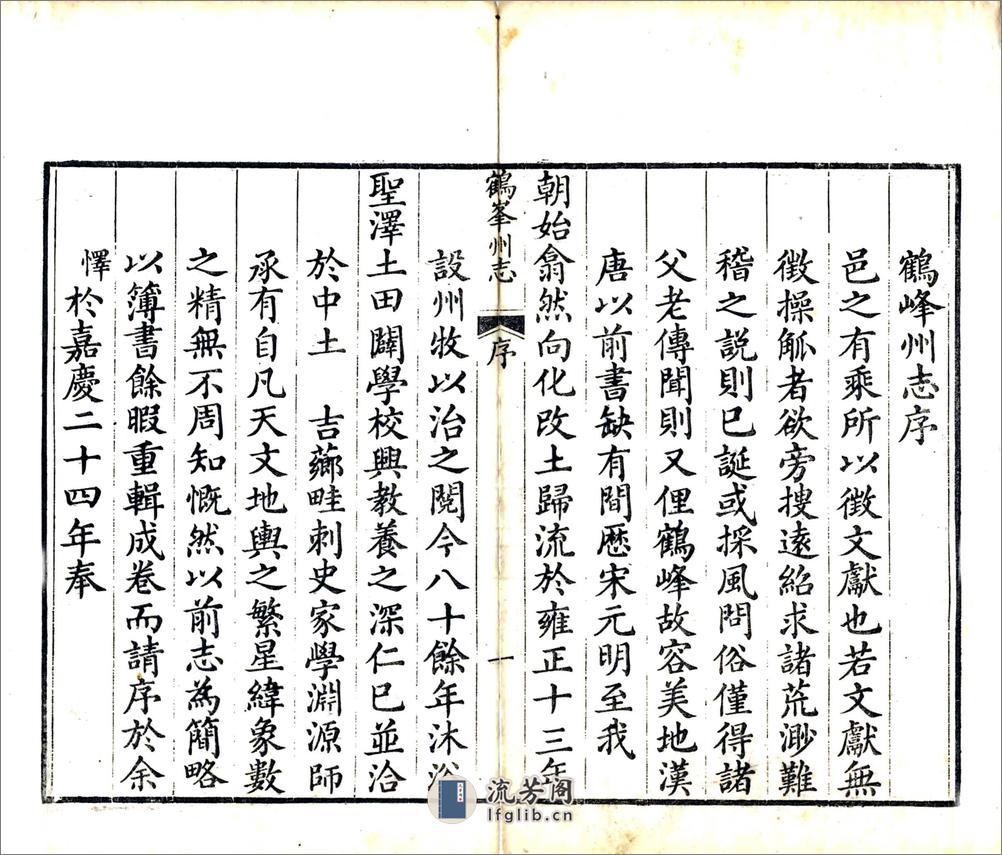 鶴峰州志序
邑之有乘所以徵文獻也若文獻無
徵操觚者欲旁搜遠紹求諸荒渺難
稽之説則已誕或採風問俗僅得諸
父老傳聞則又俚鶴峰故容美地漢
唐以前書缺有間歴宋元明至我
朝始翕然向化改土歸流於雍正十三年
鶴峯州志 序 一
設州牧以治之閱今八十餘年沐浴
聖澤土田闢學校興教養之深仁已並洽
於中土 吉薌畦刺史家學淵源師
承有自凡天文地輿之繁星緯象數
之精無不周知慨然以前志為簡略
以簿書餘暇重輯成卷而請序於余
懌於嘉慶二十四年奉
流芳阁
lfglib.cn